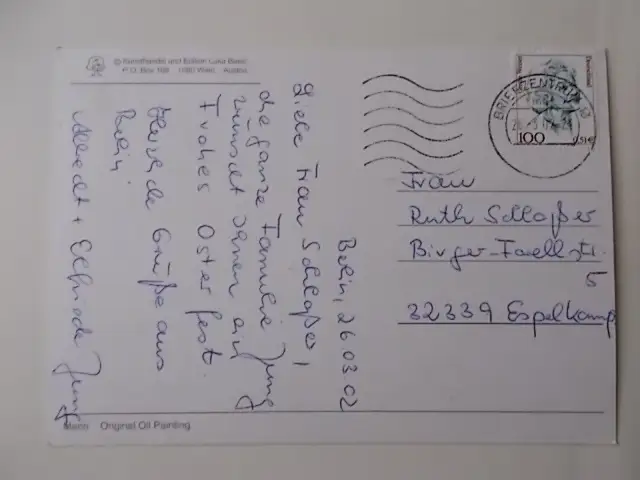 © Kunsthandel und Edition Luna Basic
P.O. Box 108 1080 Wien Austria
Berlin, 26 03 02
Liebe Frau Schloßer,
die ganze Familie Jung
wünscht Ihnen ein
Frohes Osterfest.
Herzliche Grüße aus
Berlin
Albrecht + Elfriede Jung
BRIEFZENTRUM
Deutschland
100
0,51€
Frau
Ruth Schloßer
Birger-Forell-str.
5
32339 Espelkamp
Original Oil Painting